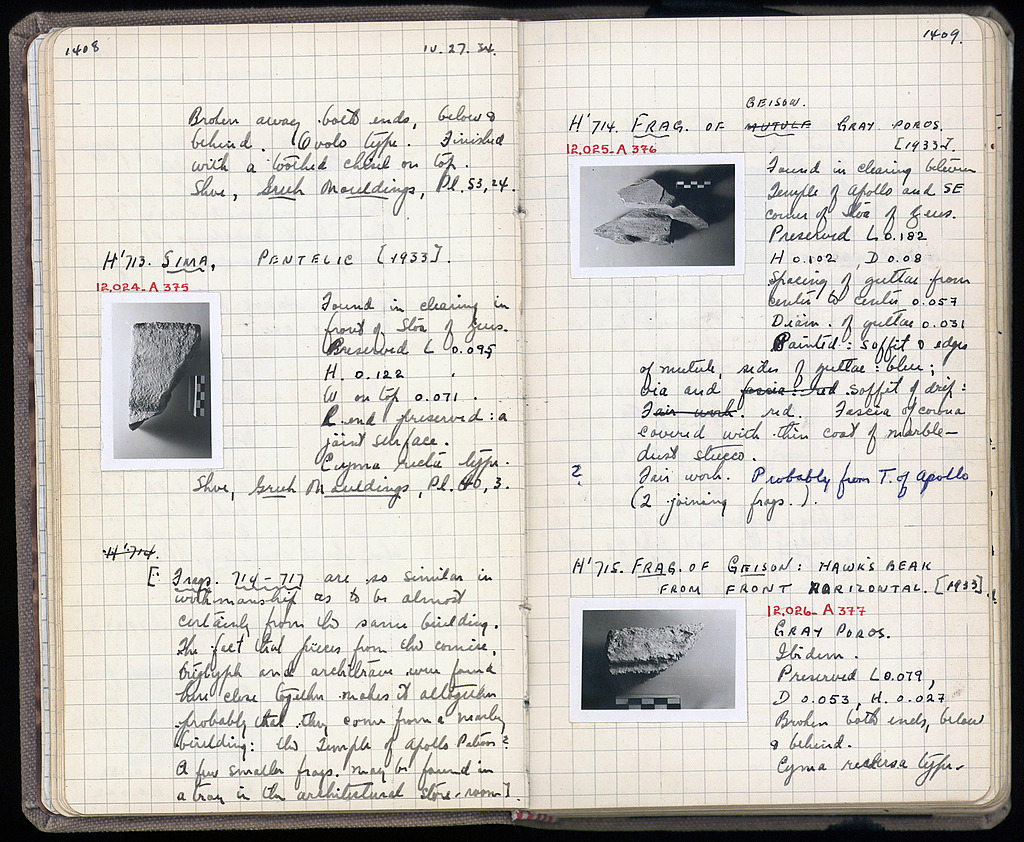 1408
IV. 27. 34.
Broken away both ends, below &
behind. Ovolo type. Finished
with a toothed chisel on top.
Shoe, Greek Mouldings, Pl. 53, 24.
H'713. SIMA, PENTELIC [1933].
12.024-A 375
Found in clearing in
front of Stoa of Zeus.
Preserved L 0.095
H. 0.122
W on top 0.071.
R. end preserved: a
joint surface.
Cyma recta type.
Shoe, Greek Mouldings, Pl. 40, 3.
H'714.
[: Frags. 714-717 are so similar in
workmanship as to be almost
certainly from the same building.
The fact that pieces from the cornice,
triglyph and architrave were found
here close together makes it altogether
probably that they come from a nearby
building: the Temple of Apollo Patroos?
A few smaller frags. may be found in
a tray in the architectural store-room].
1409.
GEISON.
H'714. FRAG. OF MUTULE GRAY POROS.
[1933].
12.025-A 376
Found in clearing between
Temple of Apollo and SE
corner of Stoa of Zeus.
Preserved L 0.182
H 0.102, D 0.08
Spacing of guttae from
centre to centre 0.057
Diam. of guttae 0.031
Painted: soffit & edges
of mutule, sides of guttae: blue;
via and fascia: red soffit of drip:
Fair work. red. Fascia of corona
covered with thin coat of marble-
dust stucco.
? Fair work. Probably from T. of Apollo
(2 joining frags.).
H'715. FRAG. OF GEISON: HAWK'S BEAK
FROM FRONT HORIZONTAL. [1933].
12.026-A 377
GRAY POROS.
Ibidem.
Preserved L 0.079,
D 0.053, H. 0.027
Broken both ends, below
& behind.
Cyma reversa type.